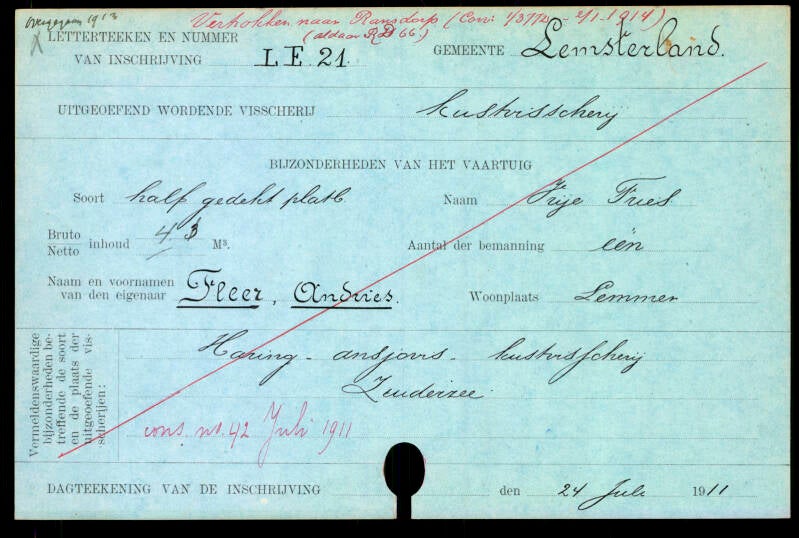 overgegaan 1913
Verhokken naar Ransdorp (Con: 1/3772 - 2/1. 1914)
X LETTERTEEKEN EN NUMMER (aldaar RD 66.) GEMEENTE Lemsterland.
VAN INSCHRIJVING LE. 21.
UITGEOEFEND WORDENDE VISSCHERIJ kustvisscherij
BIJZONDERHEDEN VAN HET VAARTUIG
Soort half gedekt platb. Naam Vrije Fries
Bruto
Netto inhoud 4.3 M³. Aantal der bemanning één
Naam en voornamen
van den eigenaar Fleer, Andries. Woonplaats Lemmer
Vermeldenswaardige
bijzonderheden be-
treffende de soort
en de plaats der
uitgeoefende vis-
scherijen:
Haring - ansjovis - kustvisscherij
Zuiderzee.
cons. no. 42 Juli 1911
DAGTEEKENING VAN DE INSCHRIJVING den 24 Juli 1911